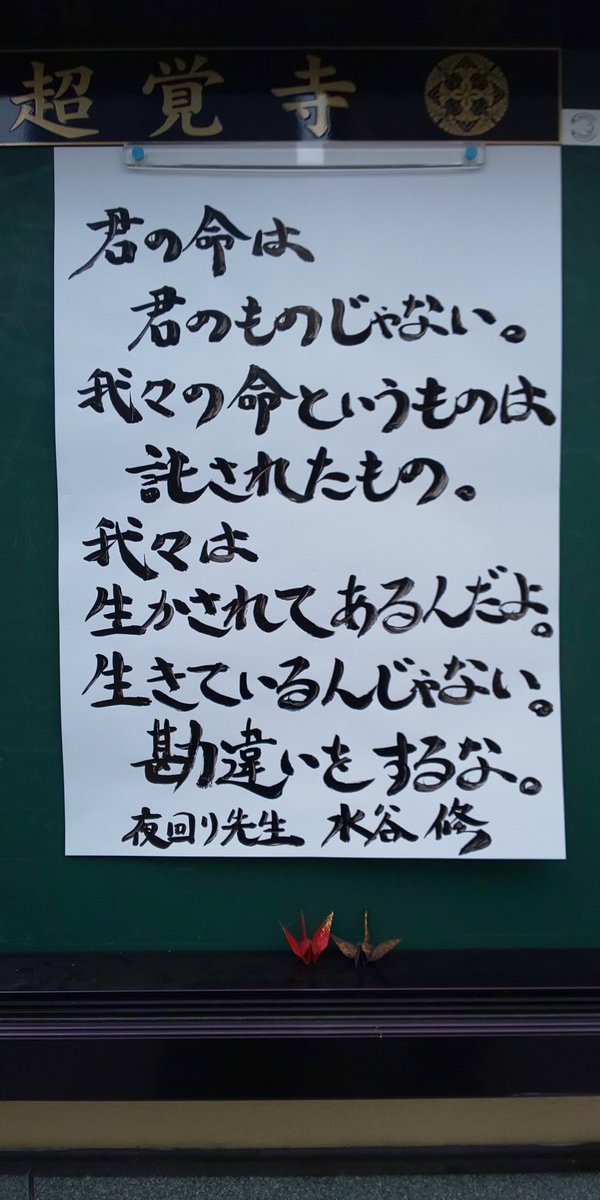 超覚寺
君の命は
君のものじゃない。
我々の命というものは
託されたもの。
我々は
生かされてあるんだよ。
生きているんじゃない。
勘違いをするな。
夜回り先生 水谷 修